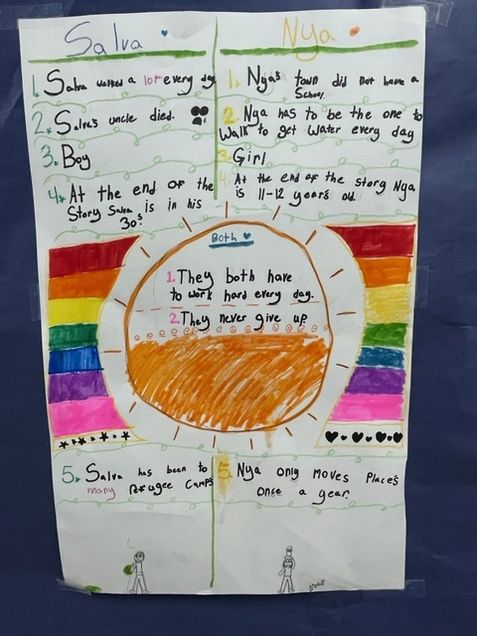 Salva
1. Salva walked a lot every day
2. Salva's uncle died.
3. Boy
4. At the end of the
Story Salva is in his
30's
Nya
1. Nya's town did not have a
School.
2. Nya has to be the one to
Walk to get water every day
3. Girl
4. At the end of the story Nya
is 11-12 year's old.
Both
1. They both have
to work hard every day.
2. They never give up.
5. Salva has been to
many Refugee Camps
5. Nya only moves Place's
once a year.